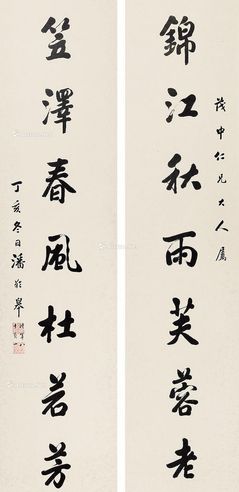 茂中仁兄大人属
錦江秋雨芙蓉老
笠澤春風杜若芳
丁亥冬日潘齡皋